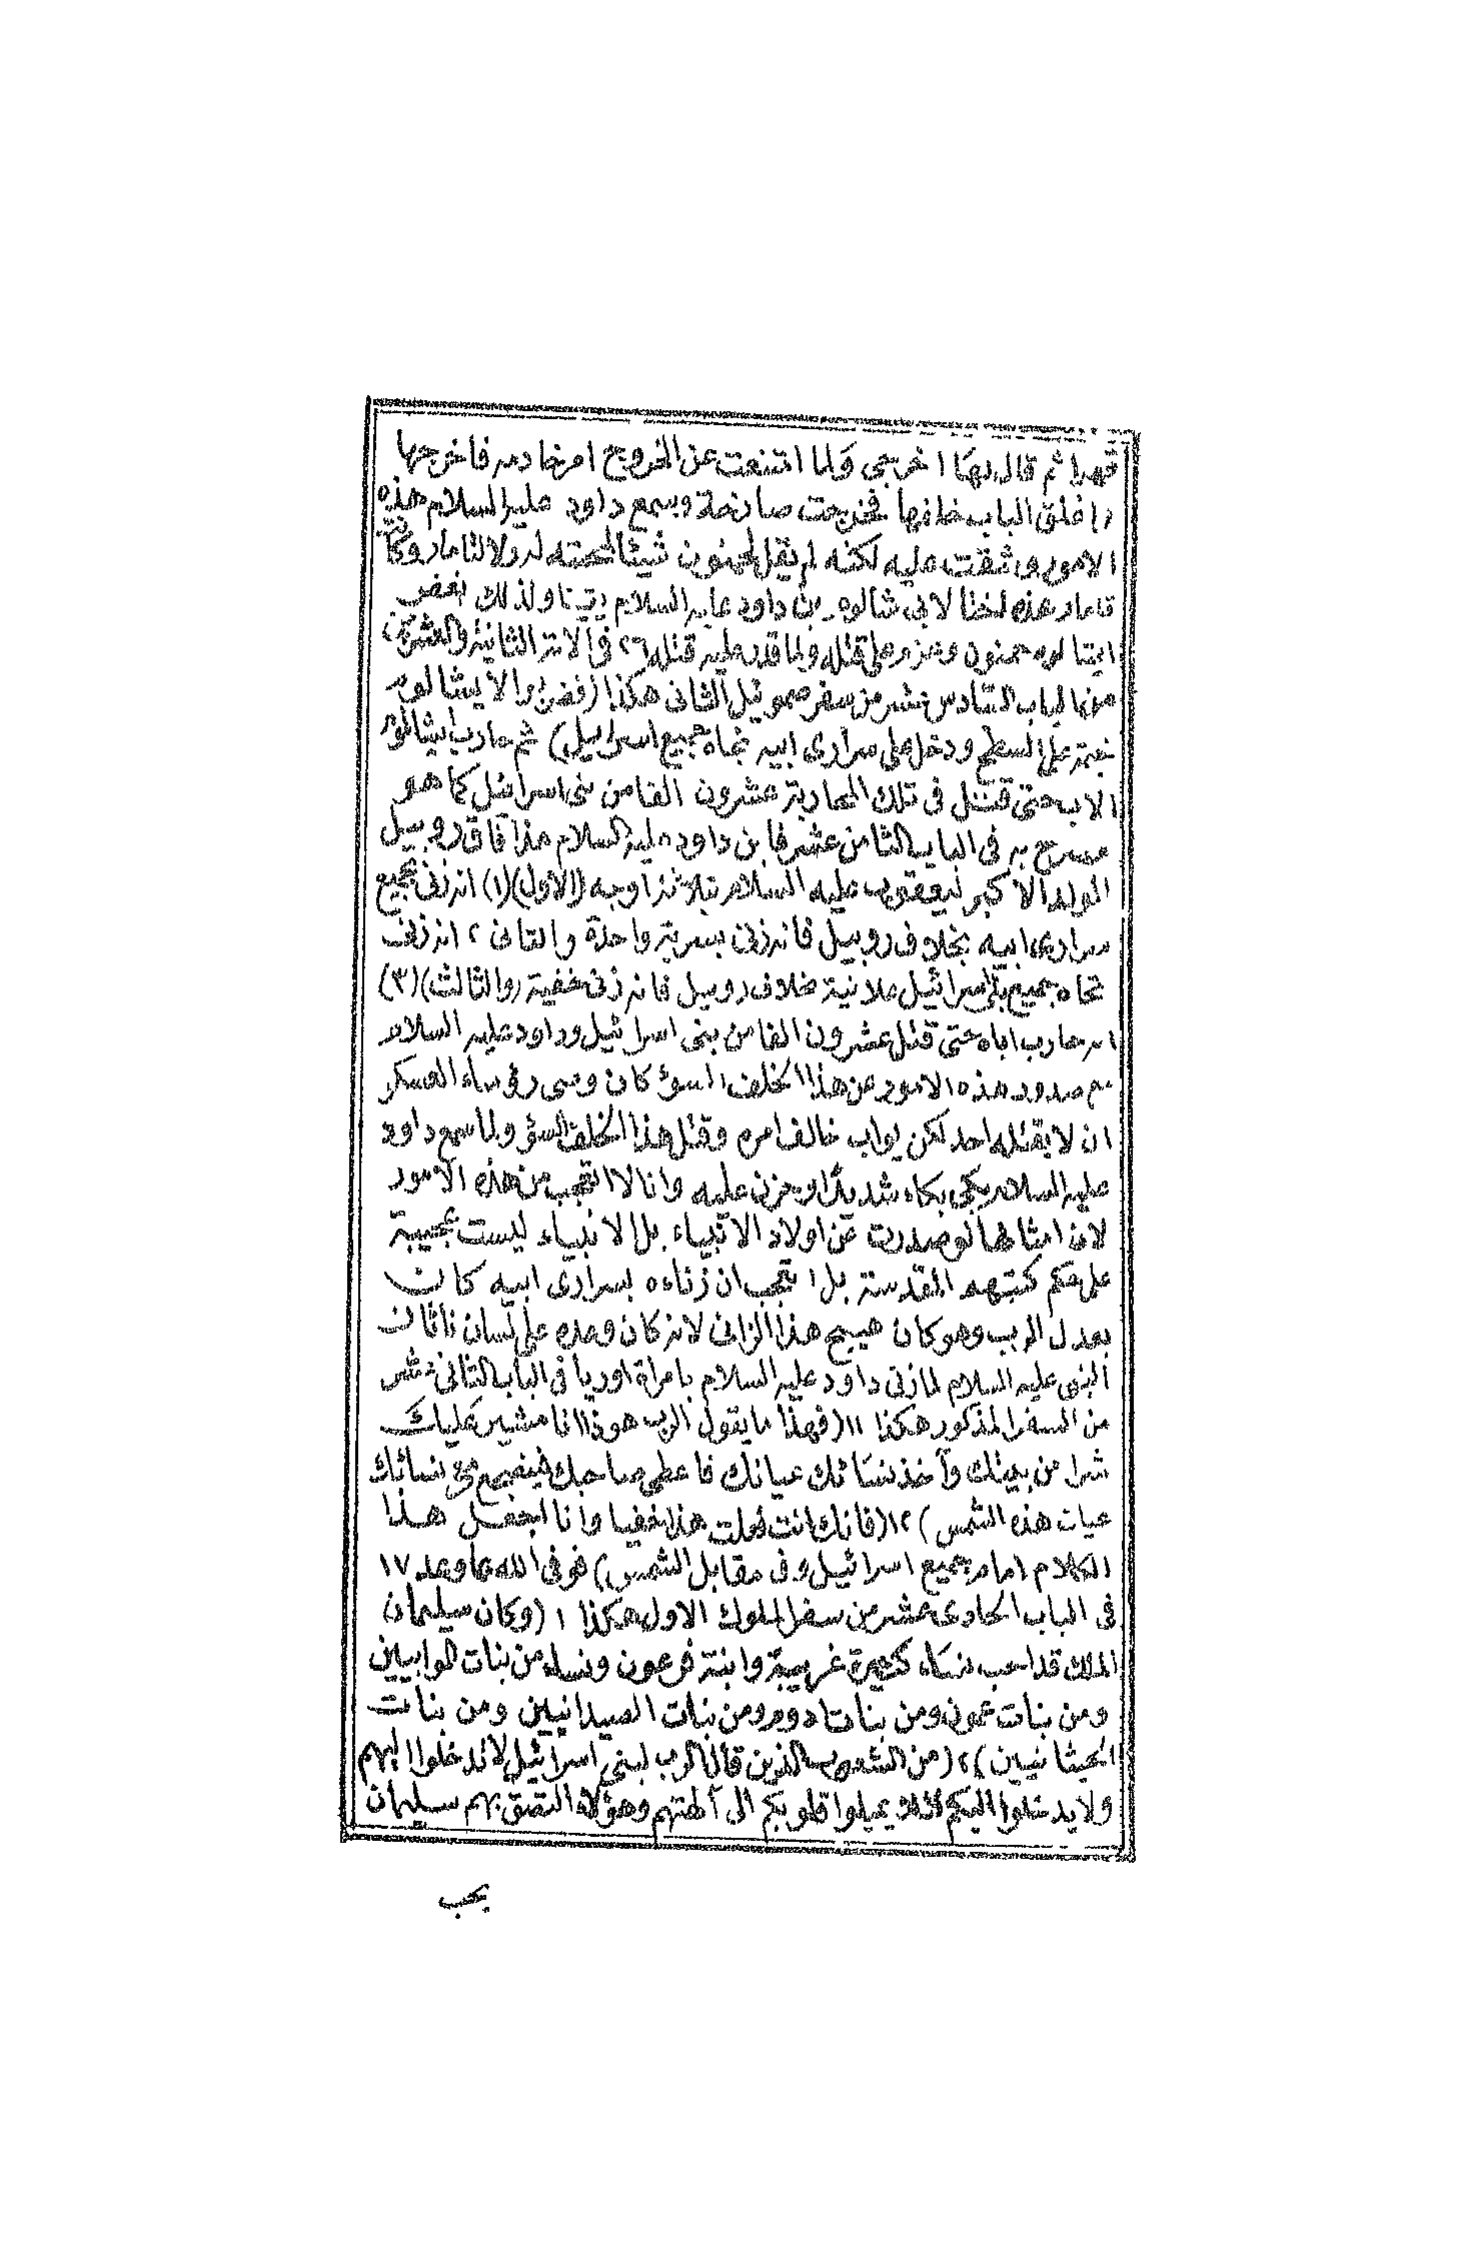 قهرا ثم قال لها اخرجي ولما امتنعت عن الخروج امر خادمه فاخرجها
واغلق الباب خلفها فخرجت صارخة وسمع داود عليه السلام هذه
الامور وشقت عليه لكنه لم يقل لحمنون شيئا لمحبته له ولا لثامار وكان
ثامار هذه اختا لابي شالوم بن داود عليه السلام ولذلك بغض
ابيشالوم حمنون وعزم على قتله ولما قدر عليه قتله ٢٦ في الآية الثانية والعشرين
من الباب السادس عشر من سفر صموئيل الثاني هكذا (فضربوا لابيشالوم
خيمة على السطح ودخل على سراري ابيه تجاه جميع اسرائيل) ثم حارب ابيشالوم
الاب حتى قتل في تلك المحاربة عشرون الفا من بني اسرائيل كما هو
مصرح به في الباب الثامن عشر فابن داود عليه السلام هذا فاق روبيل
الولد الاكبر ليعقوب عليه السلام بثلاثة اوجه (الاول)(١) انه زنى بجميع
سراري ابيه بخلاف روبيل فانه زنى بسرية واحدة والثاني ٢ انه زنى
تجاه جميع بني اسرائيل علانية بخلاف روبيل فانه زنى خفية (والثالث)(٣)
انه حارب اباه حتى قتل عشرون الفا من بني اسرائيل وداود عليه السلام
مع صدور هذه الامور عن هذا الخلف السوء كان وصى رؤساء العسكر
ان لا يقتله احد لكن يواب خالف امره وقتل هذا الخلف السوء ولما سمع داود
عليه السلام بكى بكاء شديدا وحزن عليه وانا لا اتعجب من هذه الامور
لان امثالها لو صدرت عن اولاد الانبياء بل الانبياء ليست بعجيبة
على حكم كتبهم المقدسة بل اتعجب ان زناءه بسراري ابيه كان
بعدل الرب وهو كان هيج هذا الزاني لانه كان وعده على لسان ناثان
النبي عليه السلام لما زنى داود عليه السلام بامرأة اوريا في الباب الثاني عشر
من السفر المذكور هكذا ١١ (فهذا ما يقول الرب هوذا انا مثير عليك
شرا من بيتك وآخذ نسائك عيانك فاعطي صاحبك فيضجع مع نسائك
عيان هذه الشمس) ١٢ (فانك انت فعلت هذا خفيا وانا اجعل هذا
الكلام امام جميع اسرائيل وفي مقابل الشمس) فوفى الله بما وعد ١٧
في الباب الحادي عشر من سفر الملوك الاول هكذا ١ (وكان سليمان
الملك قد احب نساء كثيرة غريبة وابنة فرعون ونساء من بنات الموابيين
ومن بنات عمون ومن بنات ادوم ومن بنات الصيدانيين ومن بنات
الحيثانيين) ٢ (من الشعوب الذين قال الرب لبني اسرائيل لا تدخلوا اليهم
ولا يدخلوا اليكم لئلا يميلوا قلوبكم الى آلهتهم وهؤلاء التصق بهم سليمان
بحب